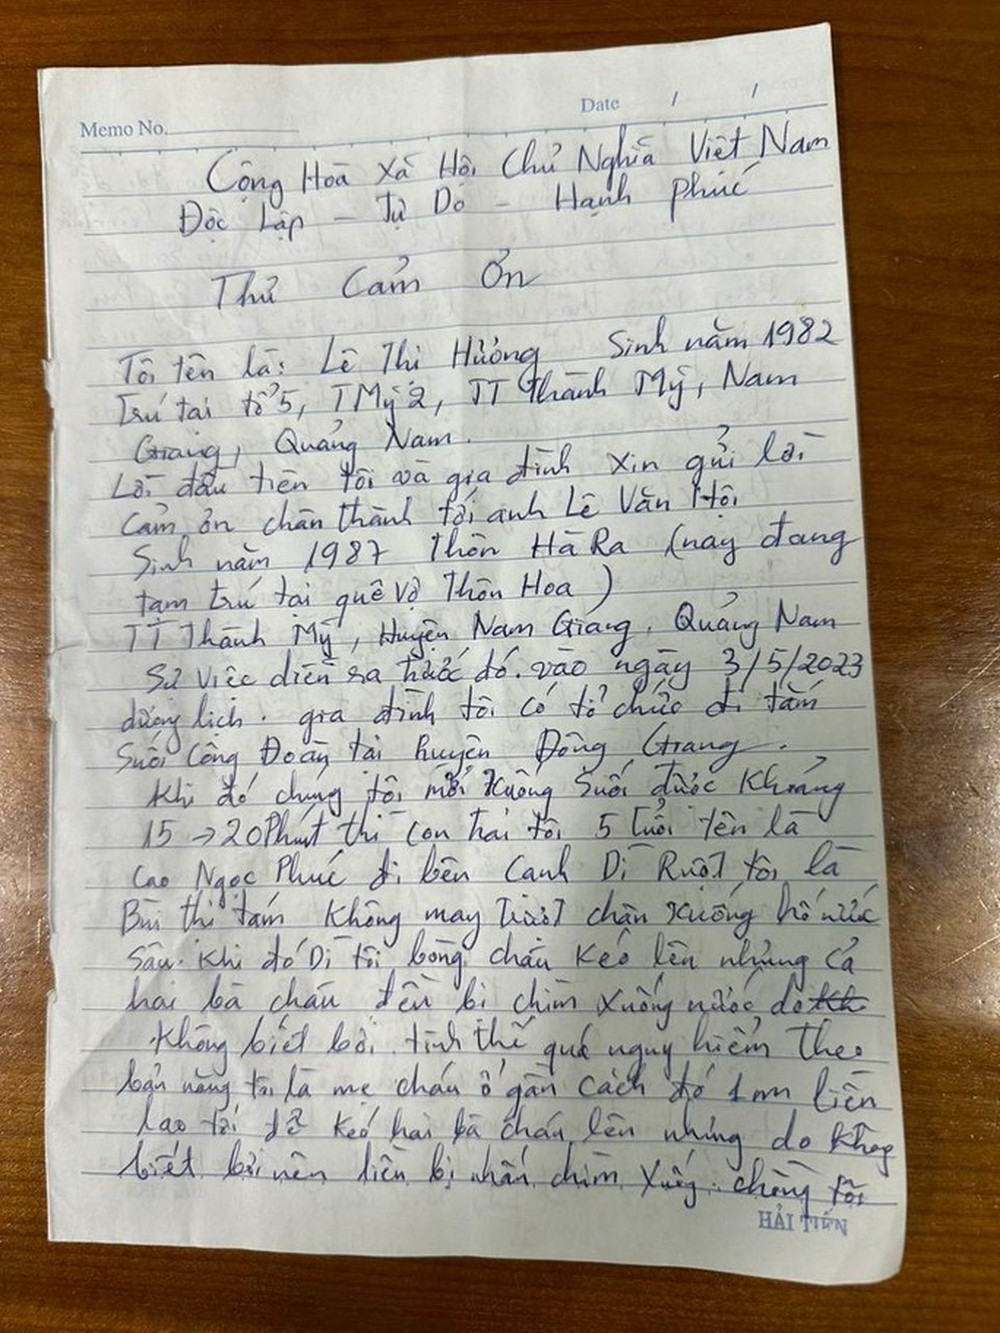 Memo No.
Date / /
Cộng Hoà Xã Hội Chủ Nghĩa Việt Nam
Độc Lập - Tự Do - Hạnh Phúc
Thư Cảm Ơn
Tôi tên là: Lê Thị Hường Sinh năm 1982
Trú tại tổ 5, TMỹ 2, TT Thành Mỹ, Nam
Giang, Quảng Nam.
Lời đầu tiên tôi và gia đình xin gửi lời
Cảm ơn chân thành tới anh Lê Văn Hội
Sinh năm 1987 Thôn Hà Ra (nay đang
tạm trú tại quê vợ Thôn Hoa)
TT Thành Mỹ, Huyện Nam Giang, Quảng Nam
Sự việc diễn sa trước đó. vào ngày 3/5/2023
dương lịch. gia đình tôi có tổ chức đi tắm
Suối Công Đoàn tại huyện Đông Giang.
Khi đó chúng tôi mới xuống Suối được Khoảng
15 → 20 Phút thì con trai tôi 5 tuổi tên là
Cao Ngọc Phúc đi bên Cạnh Dì Ruột tôi là
Bùi thị tám Không may trượt chân xuống hố nước
Sâu. Khi đó Dì tôi bồng cháu Kéo lên nhưng cả
hai bà cháu đều bị chìm xuống nước do
Không biết bơi. tình thế quá nguy hiểm theo
bản năng tôi là mẹ cháu ở gần cách đó 1m liền
lao tới để Kéo hai bà cháu lên nhưng do Không
biết bơi nên liền bị nhấn chìm xuống. chồng tôi
HẢI TIẾN